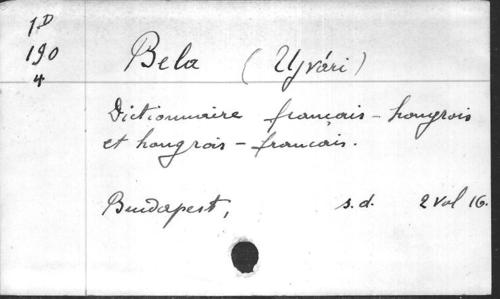 1.D
190
4
Bela (Ujvári)
Dictionnaire français - hongrois
et hongrois - français.
Budapest, s.d. 2 vol 16.